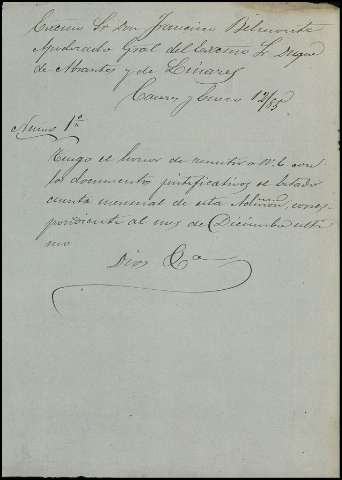 Excmo Sr Don Francisco Belmonte
Apoderado Gral del Excmo Sr Duque
de Abrantes y de Linares
Enero 12/85
Numo 1º
Tengo el honor de remitir a V. E con
los documentos justificativos el Estado
cuenta mensual de esta Admon, corres
pondiente al mes de Diciembre ulti
mo
Dios